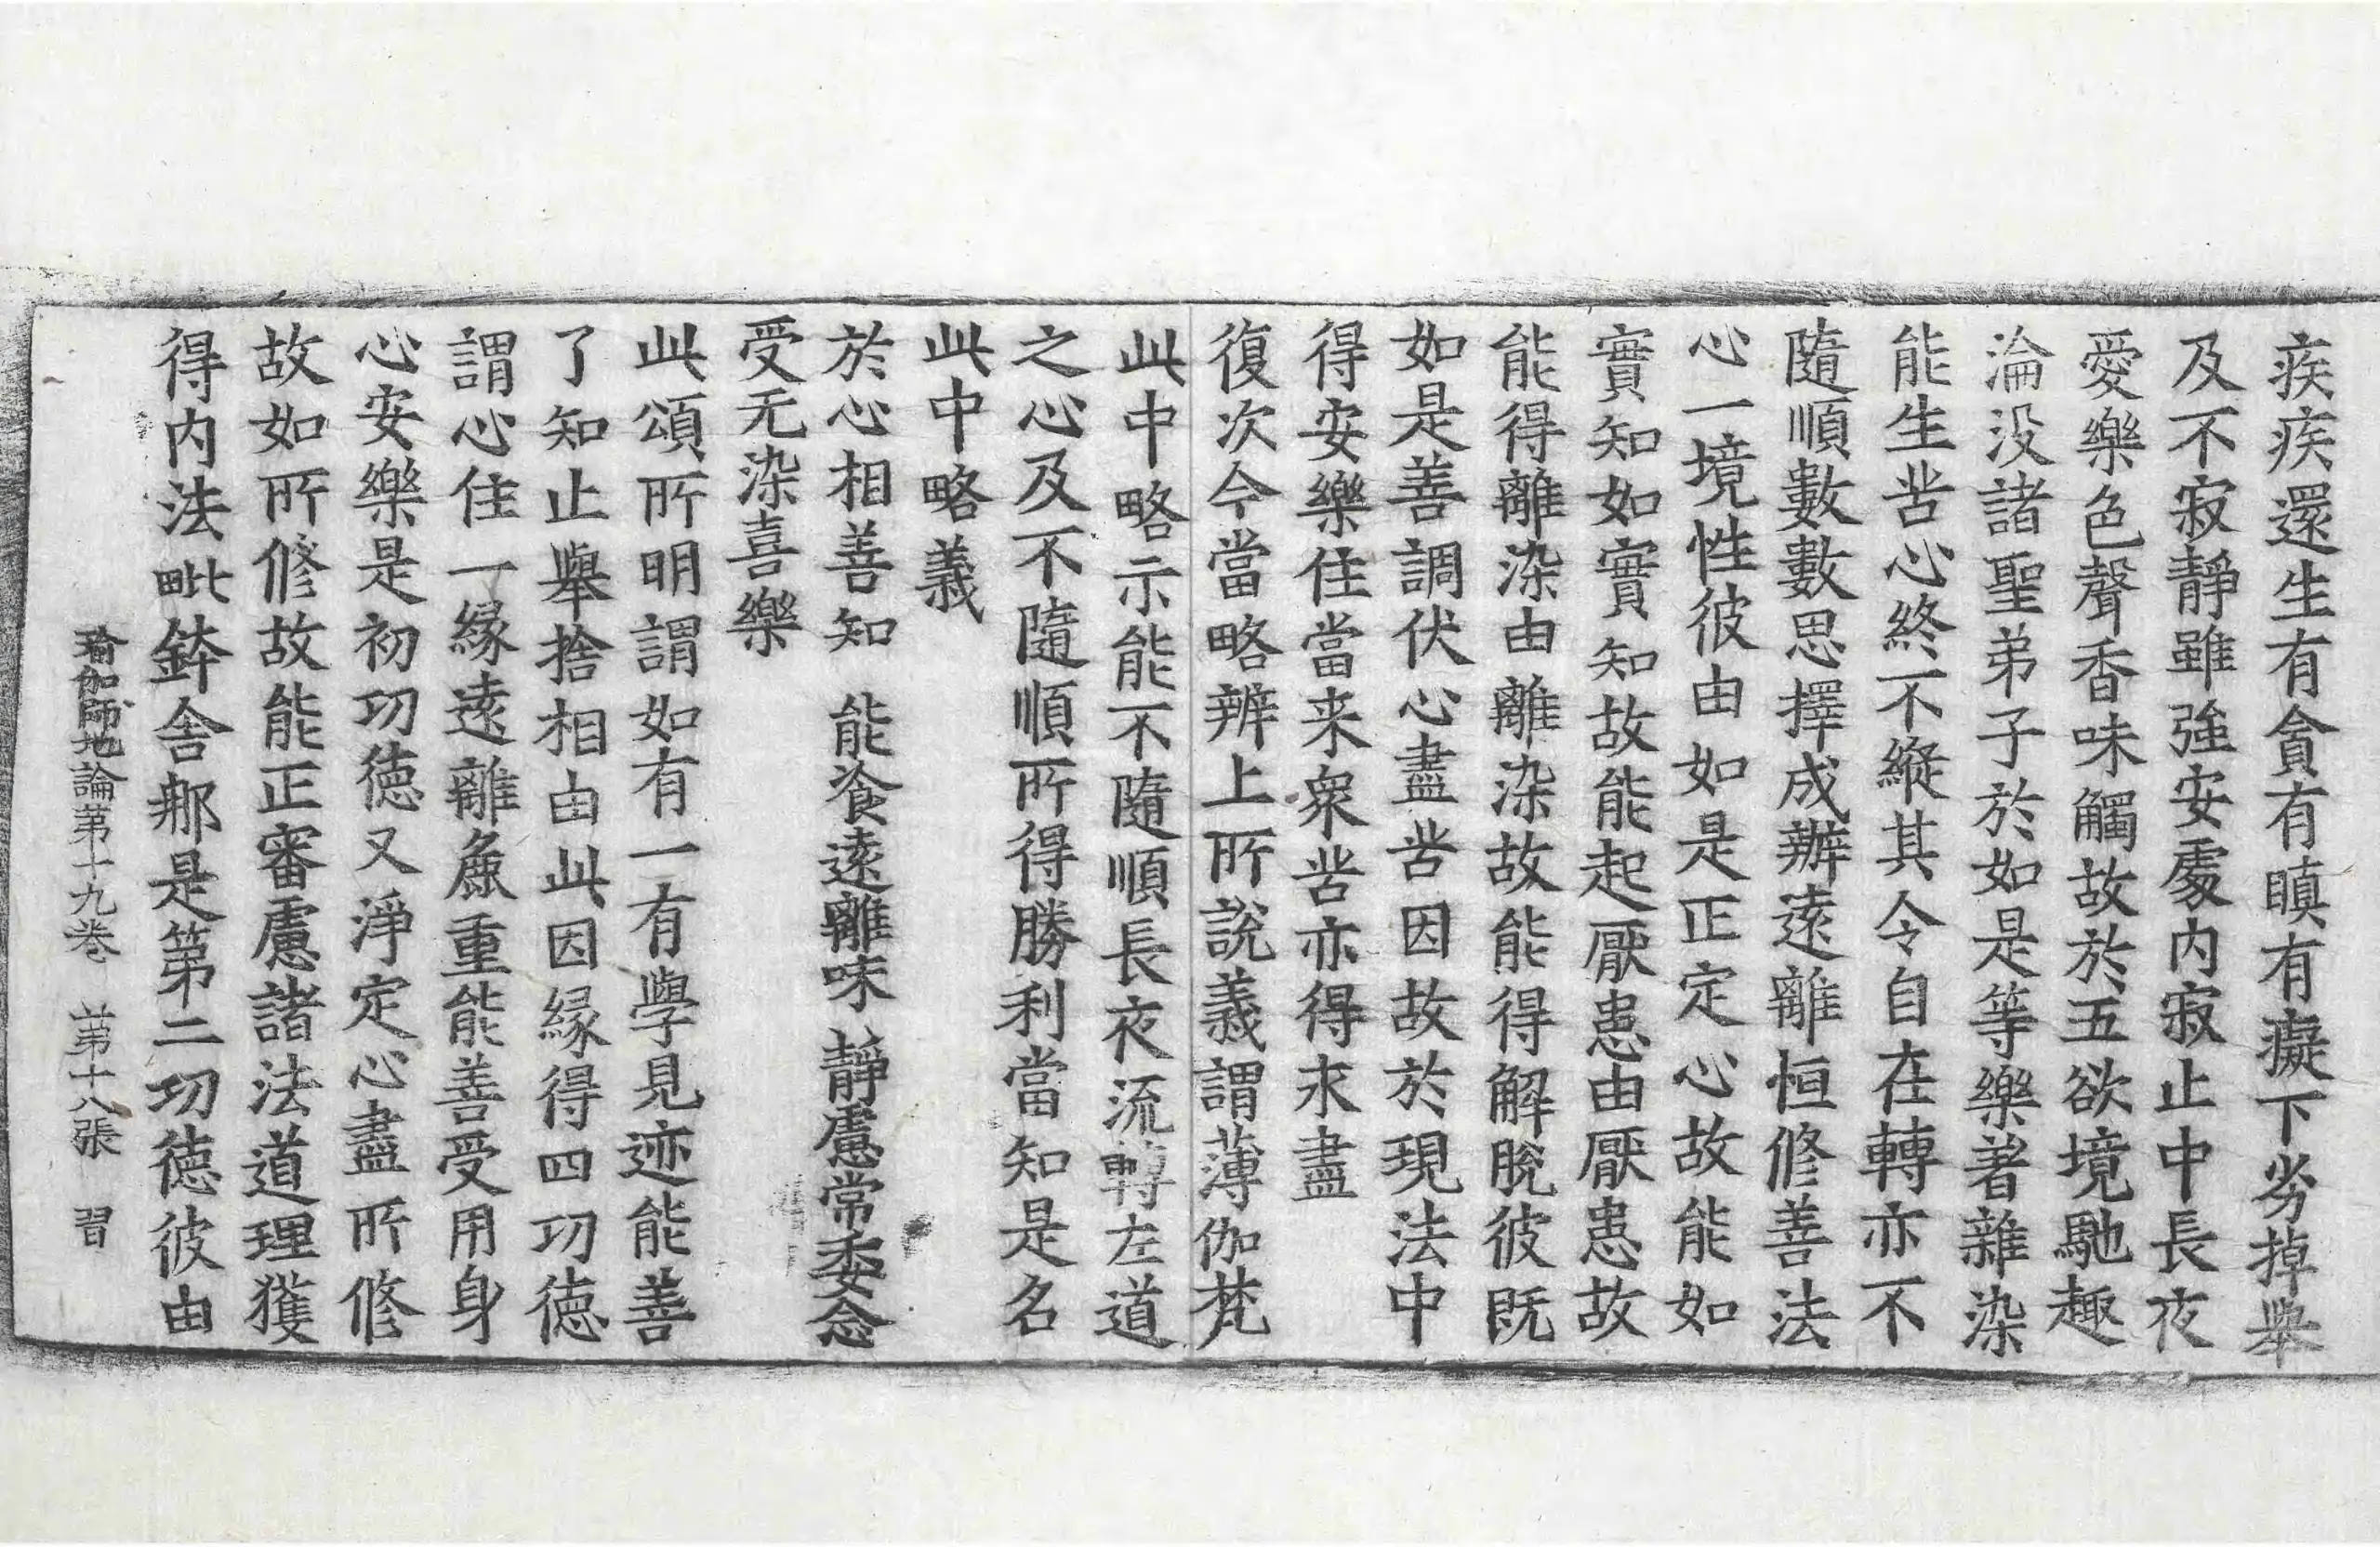 疾疾還生有貪有瞋有癡下劣掉舉
及不寂靜雖強安處內寂止中長夜
愛樂色聲香味觸故於五欲境馳趣
淪没諸聖弟子於如是等樂著雜染
能生苦心終不縱其令自在轉亦不
隨順數數思擇成辦遠離恒修善法
心一境性彼由如是正定心故能如
實知如實知故能起厭患由厭患故
能得離染由離染故能得解脫彼既
如是善調伏心盡苦因故於現法中
得安樂住當来衆苦亦得永盡
復次今當略辨上所說義謂薄伽梵
此中略示能不隨順長夜流轉左道
之心及不隨順所得勝利當知是名
此中略義
於心相善知　能飡遠離味　靜慮常委念
受无染喜樂
此頌所明謂如有一有學見迹能善
了知止舉捨相由此因緣得四功德
謂心住一緣遠離麁重能善受用身
心安樂是初功德又淨定心盡所修
故如所修故能正審慮諸法道理獲
得內法毗鉢舍那是第二功德彼由
瑜伽師地論第十九卷　第十八張　習